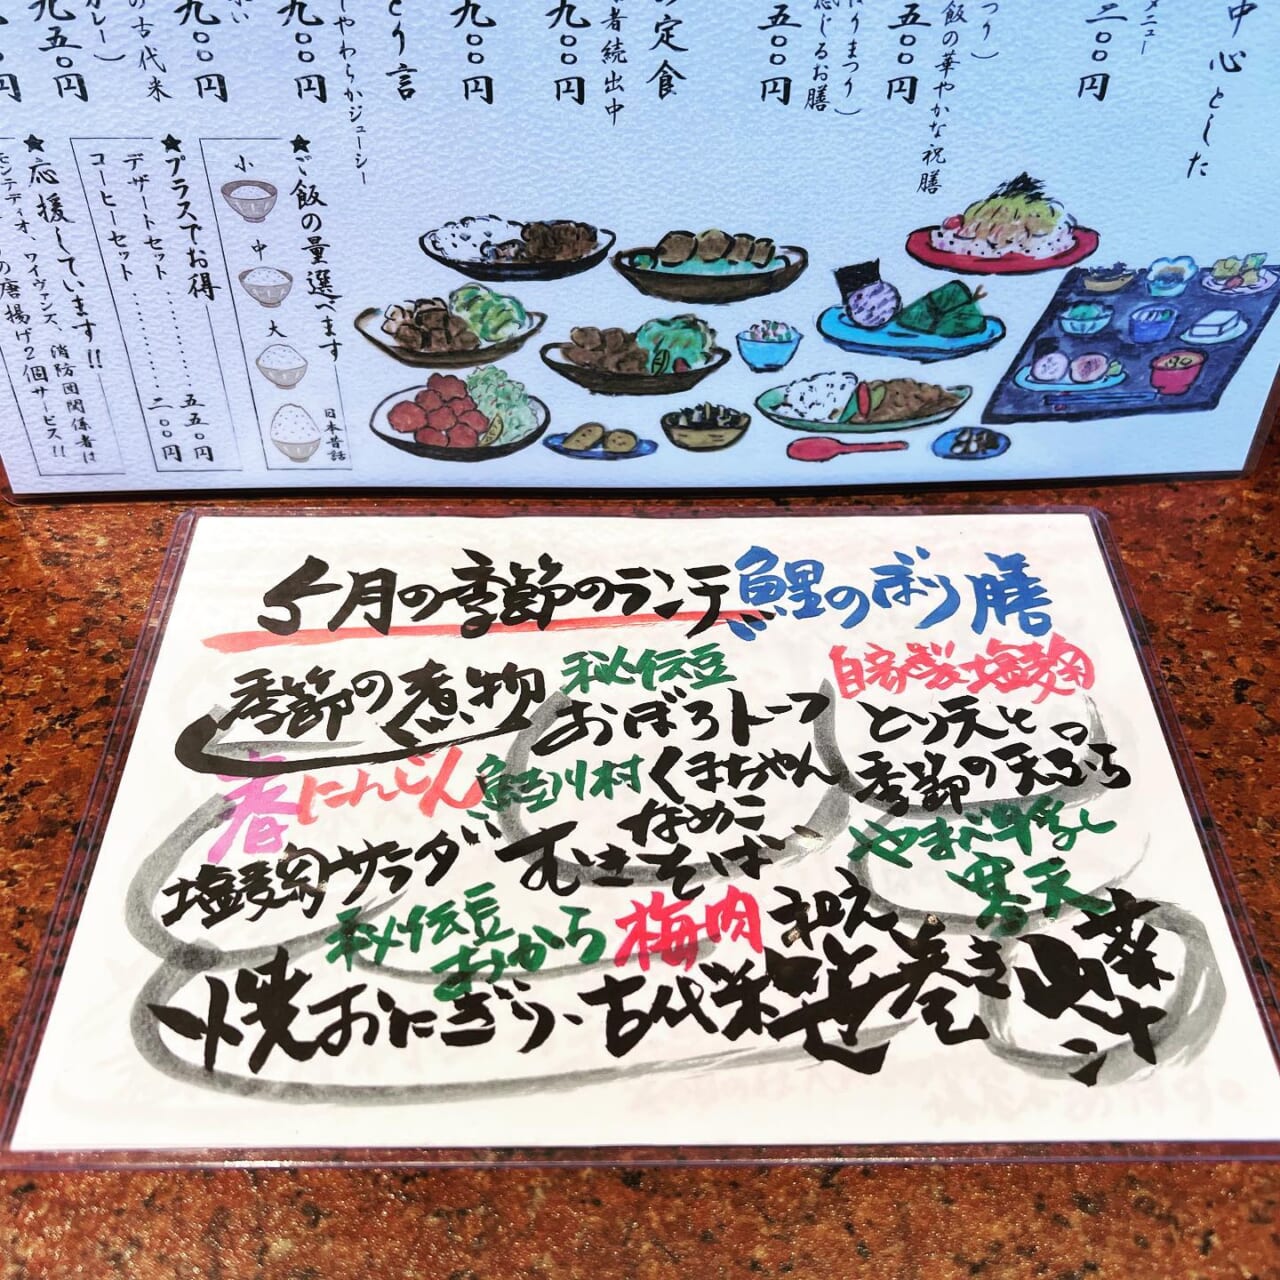 中心とした
メニュー
二〇〇円
つり）
飯の華やかな祝膳
五〇〇円
りまつり）
感じるお膳
五〇円
の定食
者続出中
九〇〇円
九〇〇円
とり言
しやわらかジューシー
九〇〇円
の古代米
九〇〇円
カレー）
九五〇円
★ご飯の量選べます
小
中
大
日本昔話
★プラスでお得
デザートセット…………五五〇円
コーヒーセット…………二〇〇円
★応援しています!!
モンテディオ、ワイヴァンズ、消防団関係者は
の唐揚げ2個サービス!!
5月の季節のランチ 鯉のぼり膳
季節の煮物
春にんじん
塩麹サラダ
秘伝豆
おぼろトーフ
鮭川村くまちゃん
なめこ
むきそば
自家製塩麹
とり天と
季節の天ぷら
やまべ牛乳
寒天
秘伝豆
おから
梅肉和え
焼おにぎり、古代米笹巻き
山菜汁